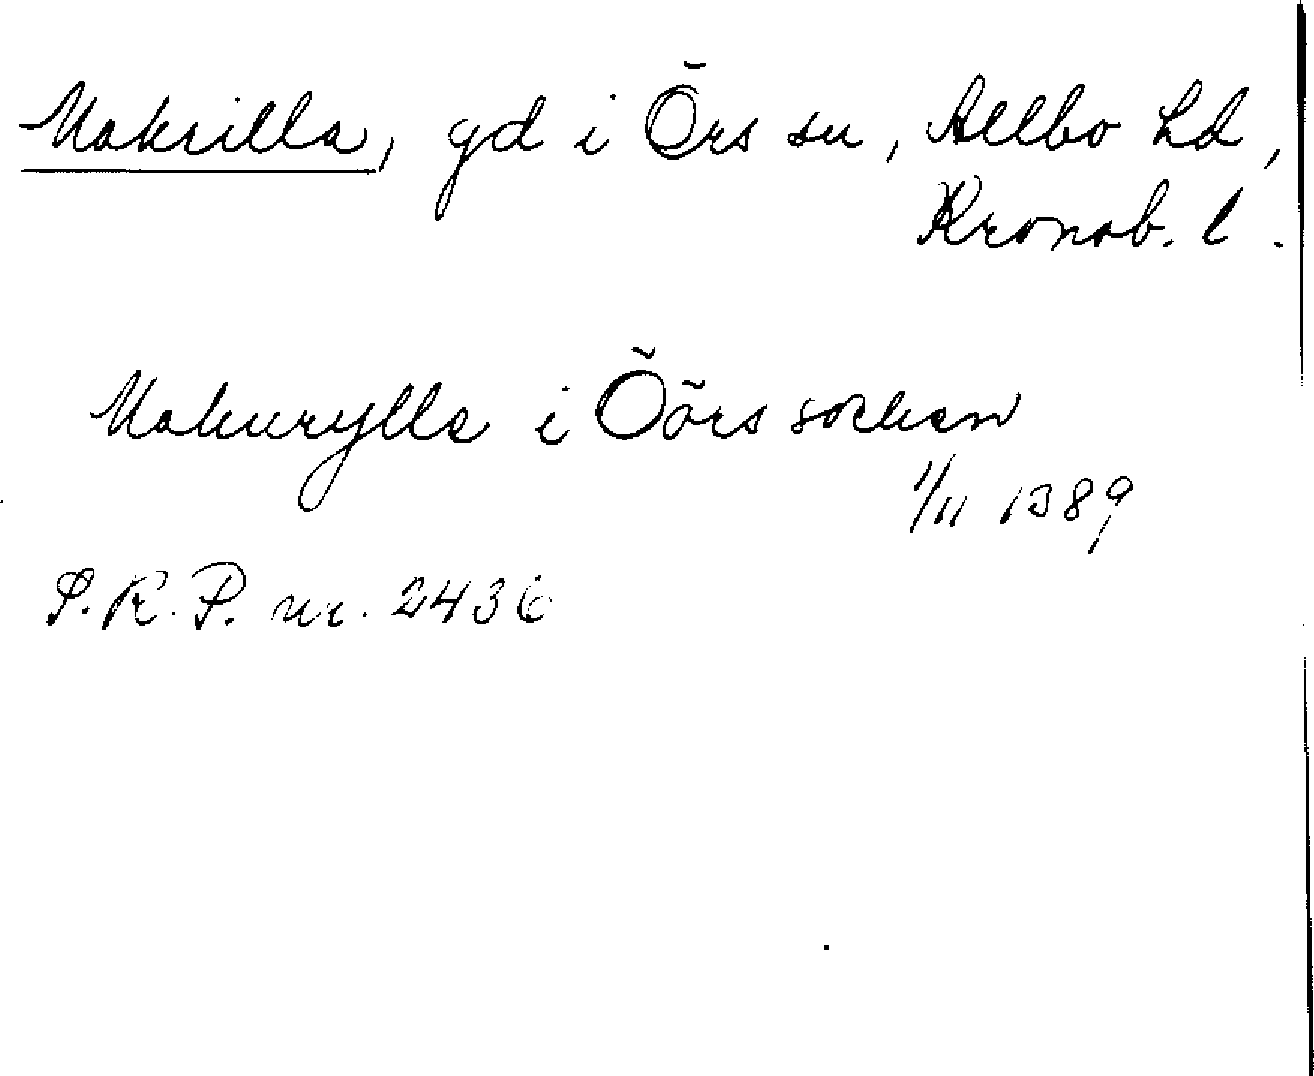 Makrilla, gd i Örs sn, Allbo hd,
Kronob. l.
Makwrylle i Öörs sockan
1/11 1389
S.R.P. nr. 2436